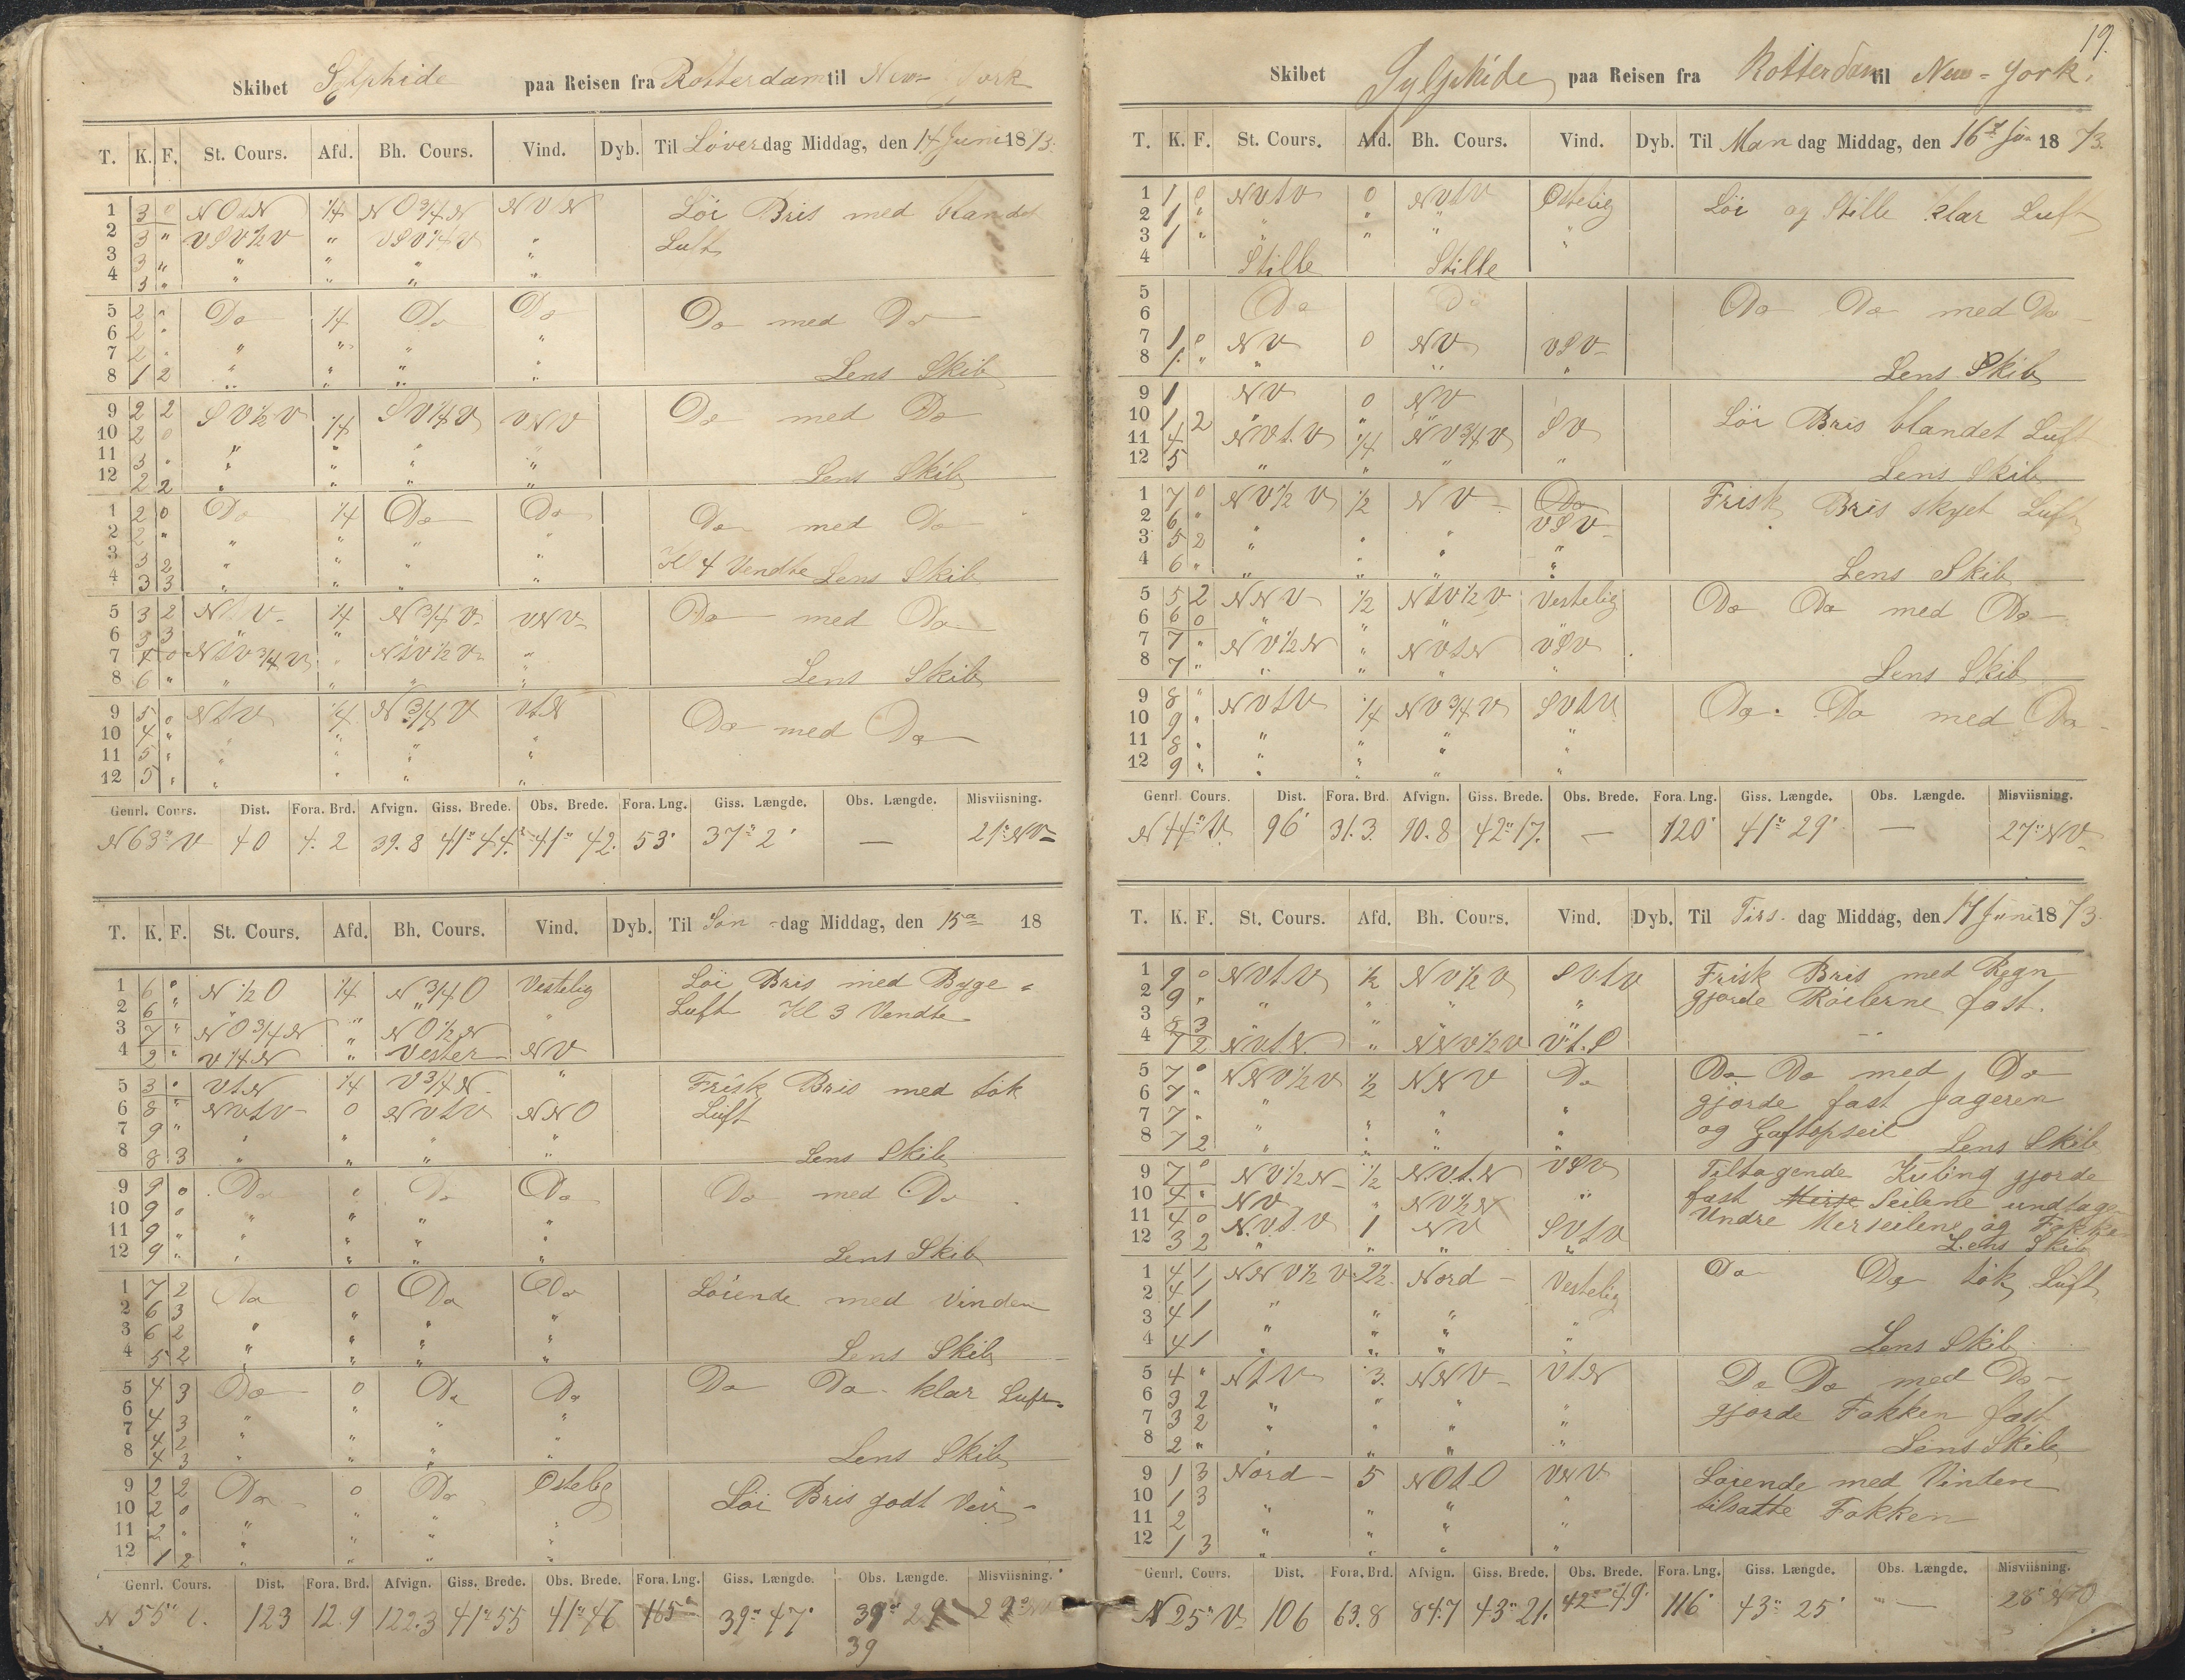 Skibet Sylphide paa Reisen fra Rotterdam til New-York
T. K. F. St. Cours. Afd. Bh. Cours. Vind. Dyb. Til Löverdag Middag, den 14 Juni 1873.
1 3 0 NOtN 1/4 NO3/4N NVN Löi Bris med blandet
2 3 " VSV1/2V " VSV1/4V " Luft
3 3 " " " " "
4 3 " " " " "
5 2 " Do 1/4 Do Do Do med Do
6 2 " " " " "
7 2 "
8 1 2 " " " " Lens Skib
9 2 2 SV1/2V 1/4 SV1/4V VNV Do med Do
10 2 0
11 3 " " " " "
12 2 2 " " " " Lens Skib
1 2 0 Do 1/4 Do Do Do med Do
2 2 " " " " "
3 3 2 " " " " Kl 4 Vendte Lens Skib
4 3 3 " " " "
5 3 2 NtV 1/4 N3/4V VNV Do med Do
6 3 3 " "
7 4 0 NtV3/4V " NtV1/2V "
8 6 " " " " " Lens Skib
9 5 0 NtV 1/4 N3/4V VtN Do med Do
10 4 " " " " "
11 5 " " " " "
12 5 " " " " "
Genrl. Cours. Dist. Fora. Brd. Afvign. Giss. Brede. Obs. Brede. Fora. Lng. Giss. Længde. Obs. Længde. Misviisning.
N63°V 40 4.2 39.8 41°44' 41°42' 53' 37°2' — 21°NV
T. K. F. St. Cours. Afd. Bh. Cours. Vind. Dyb. Til Son-dag Middag, den 15de 18
1 6 " N1/2O 1/4 N3/4O Vestelig Löi Bris med Byge
2 6 " " " " " Luft Kl 3 Vendte
3 7 " NO3/4N " NO1/2N
4 2 " V1/4N " Vester NV
5 3 " VtN 1/4 V3/4N " Frisk Bris med tök
6 8 " NVtV 0 NVtV NNO Luft
7 9 " " " " "
8 8 3 " " " " Lens Skib
9 9 0 Do " Do Do Do med Do
10 9 0 " " " "
11 9 " " " " "
12 9 " " " " " Lens Skib
1 7 2 Do 0 Do Do Löiende med Vinden
2 6 3 " " " "
3 6 2 " " " "
4 5 2 " " " " Lens Skib
5 4 3 Do 0 Do Do Do Do klar Luft
6 " " "
7 4 3 " " " "
8 4 3 " " " " Lens Skib
9 2 2 Do 0 Do Östelig Löi Bris godt Veir
10 2 0 " " " "
11 2 " " " " "
12 1 2 " " " "
Genrl. Cours. Dist. Fora. Brd. Afvign. Giss. Brede. Obs. Brede. Fora. Lng. Giss. Længde. Obs. Længde. Misviisning.
N 55° 123 12.9 122.3 41°55 41°46 165' 39°47' 39°29
39
19.
Skibet Sylphide paa Reisen fra Rotterdam til New-York.
T. K. F. St. Cours. Afd. Bh. Cours. Vind. Dyb. Til Mandag Middag, den 16de Jun 1873.
1 1 0 NVtV 0 NVtV Östelig Löi og Stille klar Luft
2 1 " " " " "
3 1 " " " " "
4 Stille Stille
5 Do Do Do Do med Do
6
7 1 0 NV 0 NV VSV
8 1 " " " " Lens Skib
9 1 NV 0 NV
10 1 2 " " " Löi Bris blandet Luft
11 4 NVtV 1/4 NV3/4V SV
12 5 " " " " Lens Skib
1 7 0 NV1/2V 1/2 NV Do Frisk Bris skyet Luft
2 6 " VSV
3 5 2 " " " "
4 6 " " " " " Lens Skib
5 5 2 NNV 1/2 NtV1/2V Vestelig Do Do med Do
6 6 0 " " "
7 7 " NV1/2N " NVtN VSV
8 7 " " " " " Lens Skib
9 8 " NVtV 1/4 NV3/4V SVtV Do Do med Do
10 9 "
11 8 " " " " "
12 9 " " " " "
Genrl. Cours. Dist. Fora. Brd. Afvign. Giss. Brede. Obs. Brede. Fora. Lng. Giss. Længde. Obs. Længde. Misviisning.
N44°V. 96' 31.3 90.8 42°17. — 120' 41°29' — 27°NV
T. K. F. St. Cours. Afd. Bh. Cours. Vind. Dyb. Til Tirs-dag Middag, den 17 Juni 1873
1 9 0 NVtV 1/2 NV1/2V SVtV Frisk Bris med Regn
2 9 " " " " " gjorde Röilerne fast.
3 8 3 "
4 7 2 NVtN " NNV1/2V VtS
5 7 0 NNV1/2V 1/2 NNV Do Do Do med Do
6 7 " " gjorde fast Jageren
7 7 " " " " " og Gaftopseil
8 7 2 " " " " Lens Skib
9 7 0 NV1/2N 1/2 NVtN VSV Tiltagende Kuling gjorde
10 4 " NV " NV1/2N " fast Seilene undtagen
11 4 0 NVtV 1 NV SVtV Undre Merseilene og Fokke
12 3 2 " " " " Lens Skib
1 4 1 NNV1/2V 2 1/2 Nord Vestelig Do Do tök Luft
2 4 1
3 4 1 " " " "
4 4 1 " " " " Lens Skib
5 4 " NtV 3. NNV VtN Do Do med Do
6 3 2 " " " " gjorde Fokken fast
7 3 2 " " " "
8 2 " " " " " Lens Skib
9 1 3 Nord 5 NOtO VNV Löiende med Vinden
10 1 3 " " " " tilsatte Fokken
11 2 " " " "
12 1 3 " " " "
Genrl. Cours. Dist. Fora. Brd. Afvign. Giss. Brede. Obs. Brede. Fora. Lng. Giss. Længde. Obs. Længde. Misviisning.
N25°V 106 63.8 84.7 43°21. 42°49' 116' 43°25' — 28°